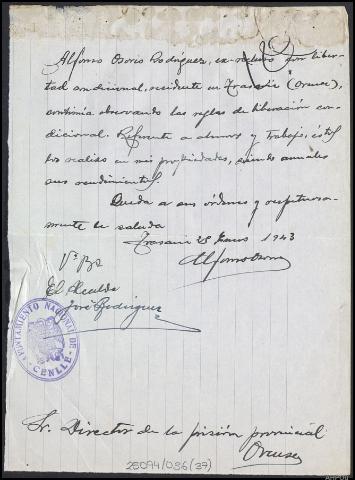 Alfonso Osorio Rodriguez, ex-recluso por liber-
tad condicional, residente en Trasariz (Orense),
continúa observando las reglas de liberación con-
dicional. Referente a ahorros y trabajo, éstos
los realizo en mis propiedades, siendo anuales
sus rendimientos.
Queda a sus órdenes y respetuosa-
mente le saluda
Trasariz 25 Marzo 1943
Alfonso Osorio
Vº Bº
El Alcalde
José Rodriguez
AYUNTAMIENTO NACIONAL DE
CENLLE
Sr. Director de la prisión provincial
Orense